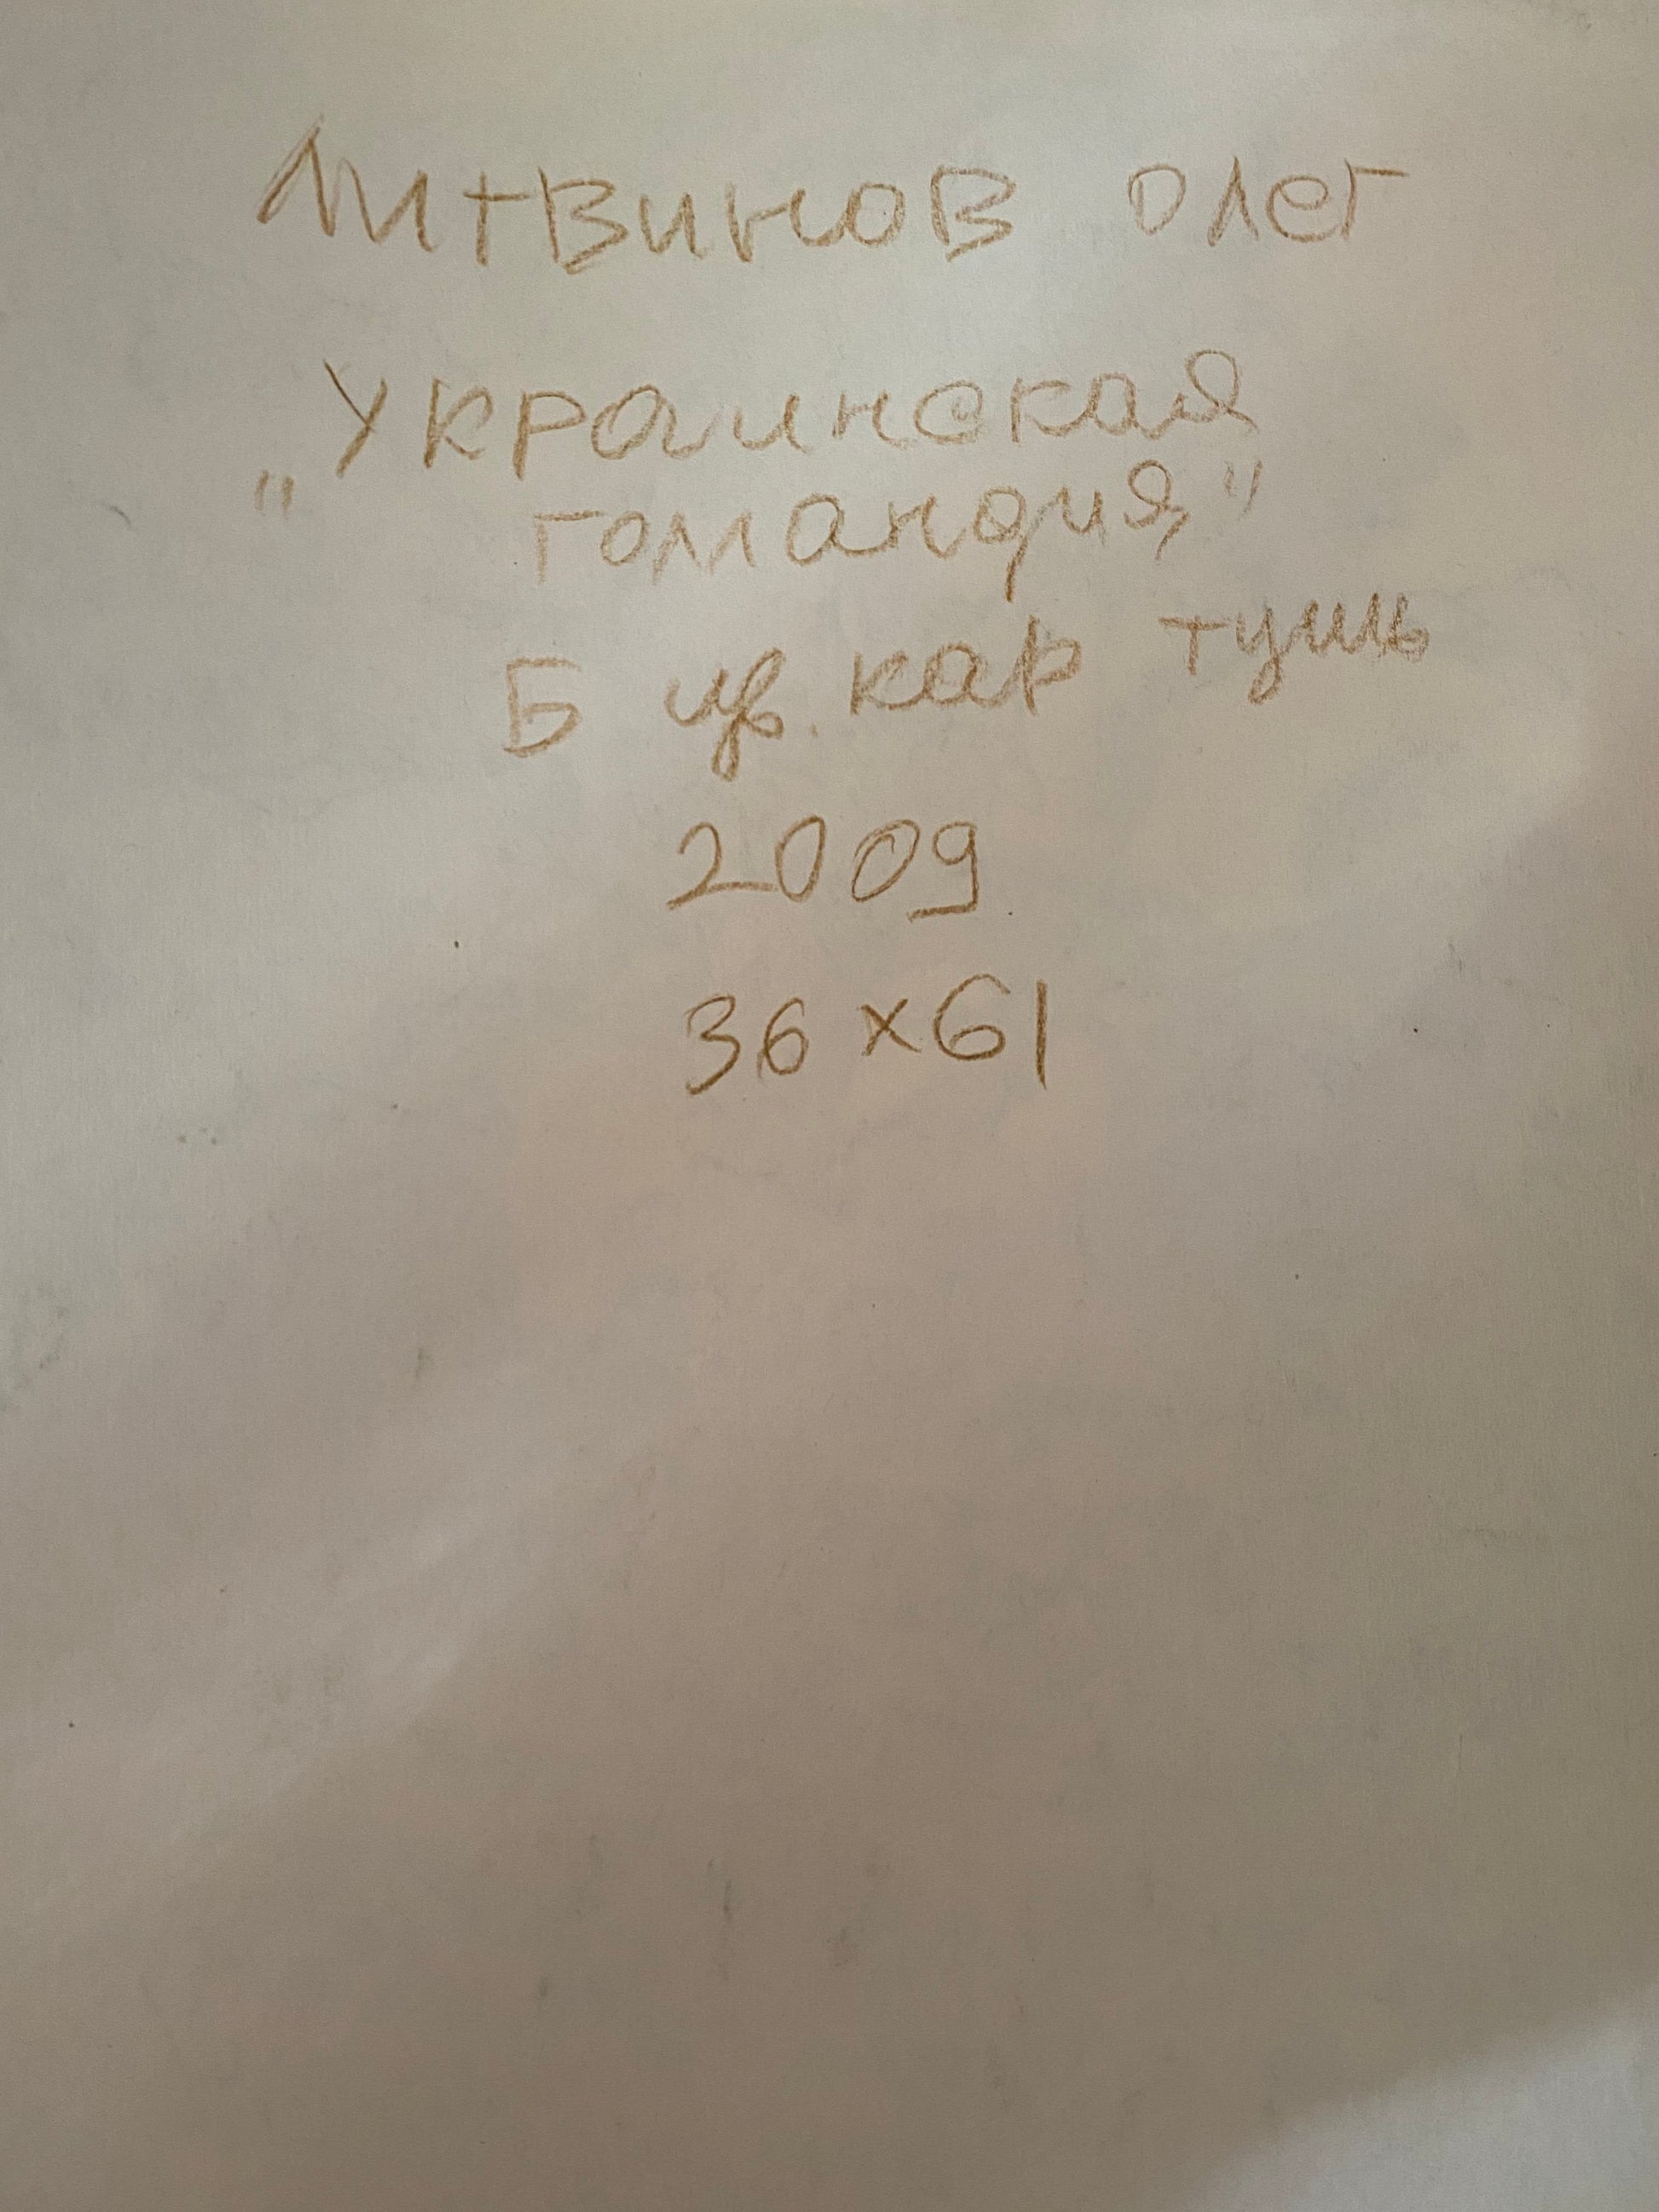 Литвинов Олег
"Украинская
Голландия"
Б цв. кар тушь
2009
36×61